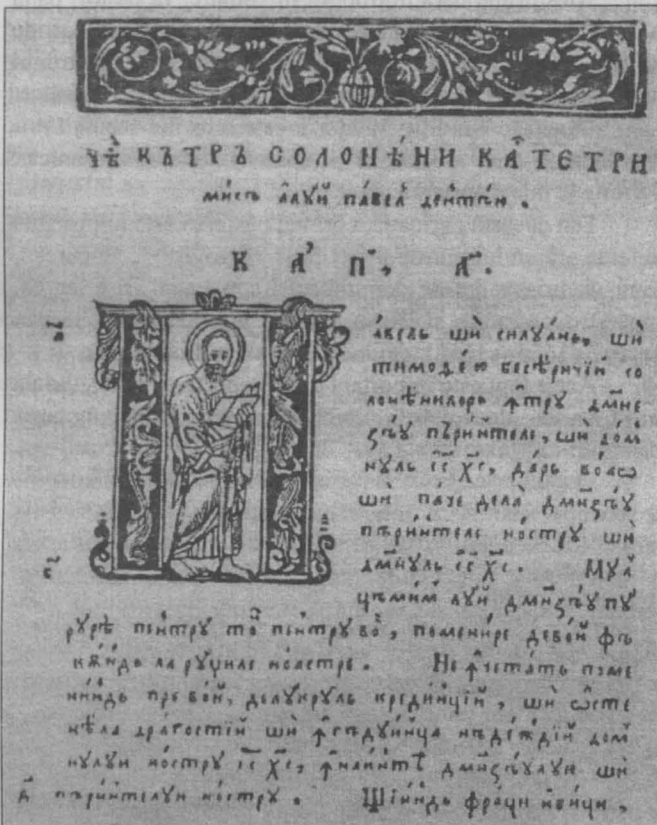 чѣ кътръ солонѣни ка́те три
мисъ а̀луй па́вел дентѫй .
К А П , А .
а́вель шѝ силуа́нь, шѝ
тимоѳе́ю бесѣричїй со
лонѣнилорь ꙟтру дм҃не
ѕѣу пъри́нтеле, шѝ до́м
нуль і҃с х҃с, да́рь во́аѡ
шѝ па́че дела̀ дм҃неѕѣу
пъри́нтеле но́стру шѝ
дм҃нуль і҃с х҃с. Мул
цъми́м луй дм҃неѕѣу пу
руре пе́нтру то҃ пе́нтру во҃, помени́ре дево́й фъ
кѫ́ндь ла ру́циле но́астре. Не ꙟчета́ть поме
ни́ндь пре во́й, делукруль креди́нцїй, шѝ ѡ̑сте
нѣла дра́гостїй шѝ ꙟгъдуи́нца нъде́ждїй дом
нулуи но́стру і҃с х҃с, ꙟнаи́нтѣ дм҃неѕѣулуи шѝ
д҃ пъри́нтелуи но́стру. Щїи́ндь фра́ци ю̑би́ци,